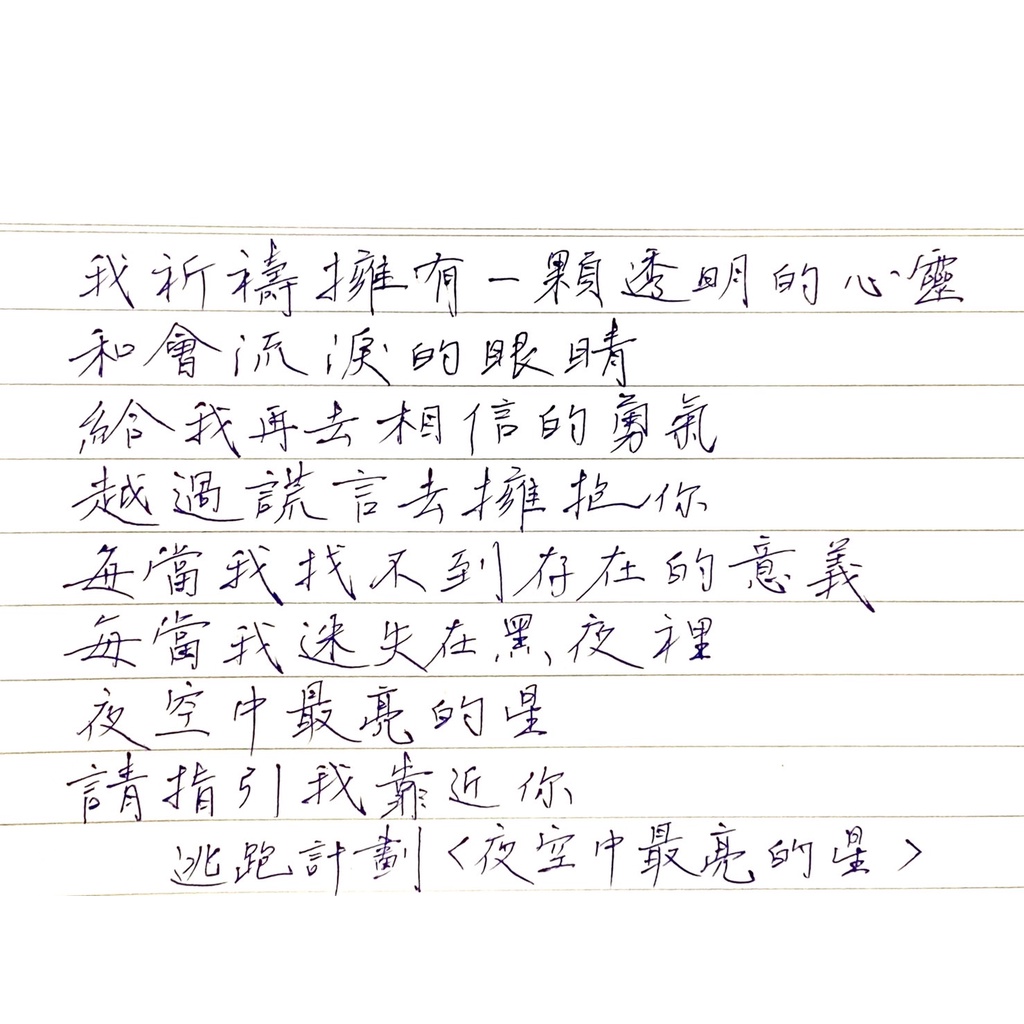 我祈禱擁有一顆透明的心靈
和會流淚的眼睛
給我再去相信的勇氣
越過謊言去擁抱你
每當我找不到存在的意義
每當我迷失在黑夜裡
夜空中最亮的星
請指引我靠近你
逃跑計劃<夜空中最亮的星>